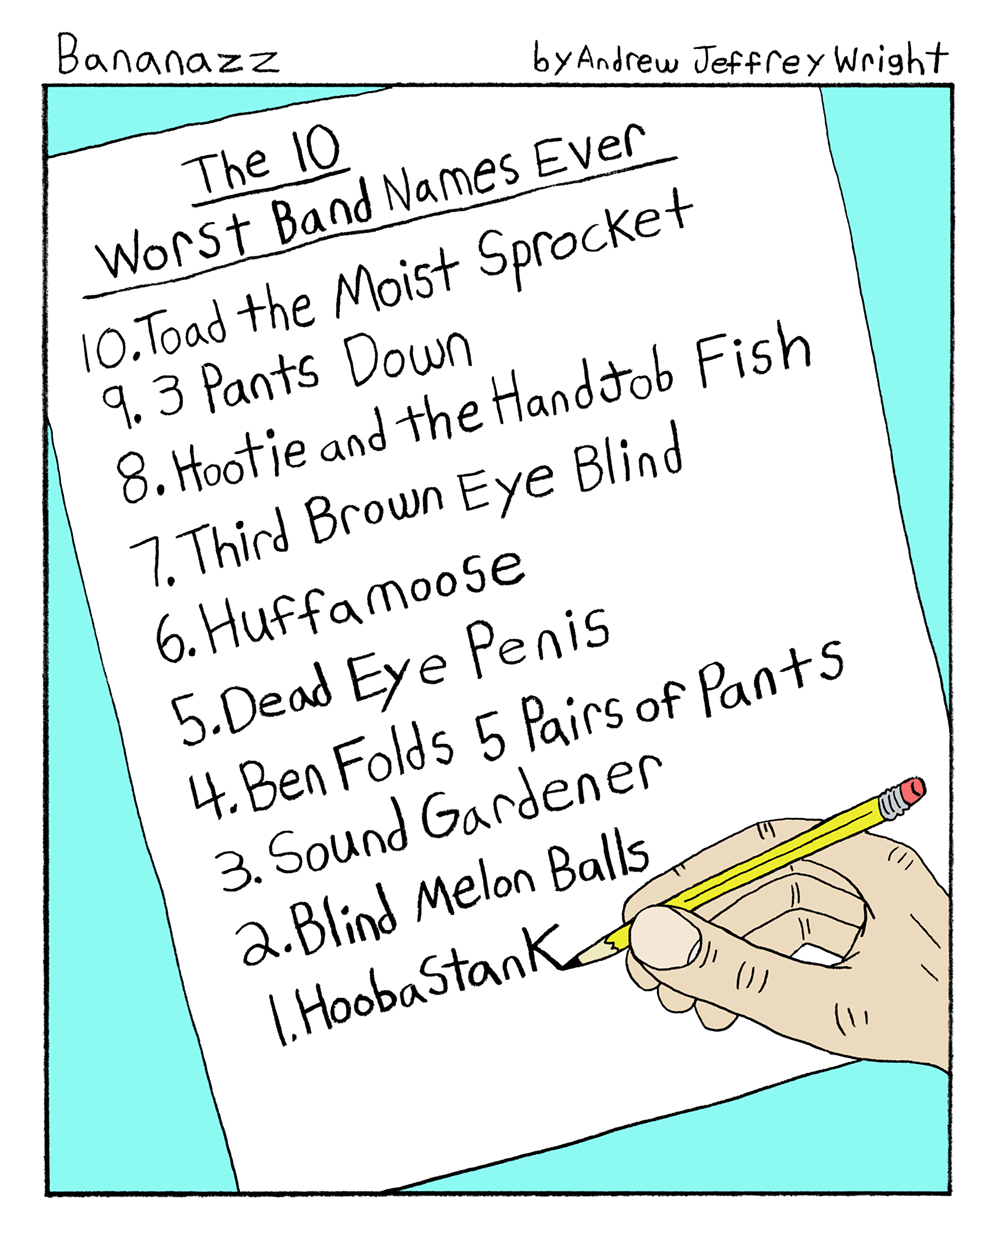 Bananazz
by Andrew Jeffrey Wright
The 10
Worst Band Names Ever
10. Toad the Moist Sprocket
9. 3 Pants Down
8. Hootie and the HandJob Fish
7. Third Brown Eye Blind
6. Huffamoose
5. Dead Eye Penis
4. Ben Folds 5 Pairs of Pants
3. Sound Gardener
2. Blind Melon Balls
1. HoobaStanK